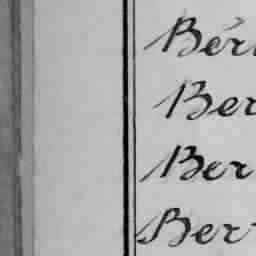 Bér
Ber
Ber
Ber